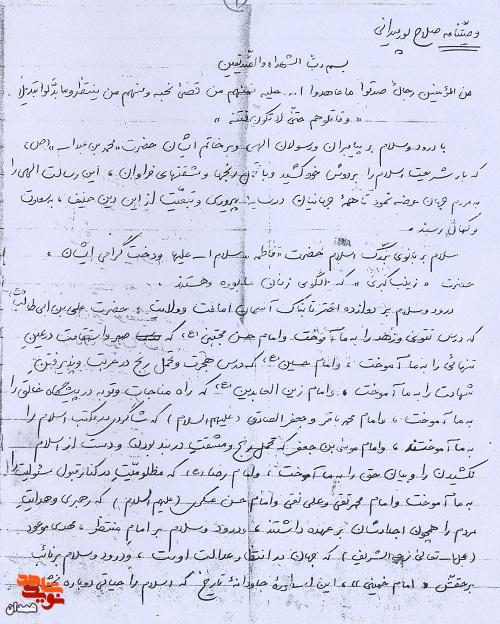 ۱
وصیتنامه صلاح پویرانی
بسم رب الشهداء والصدیقین
من المؤمنین رجال صدقوا ما عاهدوا ا... علیه فمنهم من قضی نحبه و منهم من ینتظر و ما بدلوا تبدیلا
« وقاتلوهم حتی لا تکون فتنة »
با درود و سلام بر پیامبران و رسولان الهی و بر خاتم ایشان حضرت «محمد بن عبدا...» (ص)
که بار شریعت اسلام را بر دوش خود کشید و با تحمل رنجها و مشقتهای فراوان ، این رسالت الهی را
به مردم جهان عرضه نمود تا همۀ جهانیان در پیروی و تبعیت از این دین حنیف ، به سعادت
و کمال رسند .
سلام بر بانوی بزرگ اسلام حضرت «فاطمه» سلام ا... علیها و دخت گرامی ایشان ،
حضرت «زینب کبری» که الگوی زنان هستند .
درود و سلام بر دوازده اختر تابناک آسمان امامت و ولایت ، حضرت علی بن ابی طالب
که درس تقوی و زهد را به ما آموخت و امام حسن مجتبی (ع) که صبر و استقامت در عین
تنهائی را به ما آموخت ، و امام حسین (ع) که درس هجرت و تحمل رنج در غربت و پذیرفتن
شهادت را به ما آموخت ، و امام زین العابدین (ع) که راه مناجات و توبه در پیشگاه خالق را
به ما آموخت ، و امام محمد باقر و جعفر الصادق (علیهم السلام) که شاگردی در مکتب اسلام را
به ما آموختند ، و امام موسی بن جعفر که تحمل رنج و مشقت در بند بودن و دست از اسلام
نکشیدن را و بیان حق را به ما آموخت ، و امام رضا (ع) که مظلومیت در کنار قبول مسئولیت را
به ما آموخت و امام محمد تقی و علی نقی و امام حسن عسکری (علیهم السلام) که رهبری و هدایت
مردم را همچون اجدادشان بر عهده داشتند ، و درود و سلام بر امام منتظر ، مهدی موعود
(عجل ا... تعالی فرجه الشریف) که جهان در انتظار عدالت اوست ، و درود و سلام بر نائب
بر حقش « امام خمینی » ، این اسطورۀ جاودانۀ تاریخ که اسلام را حیاتی دوباره
نوید شاهد
همدان